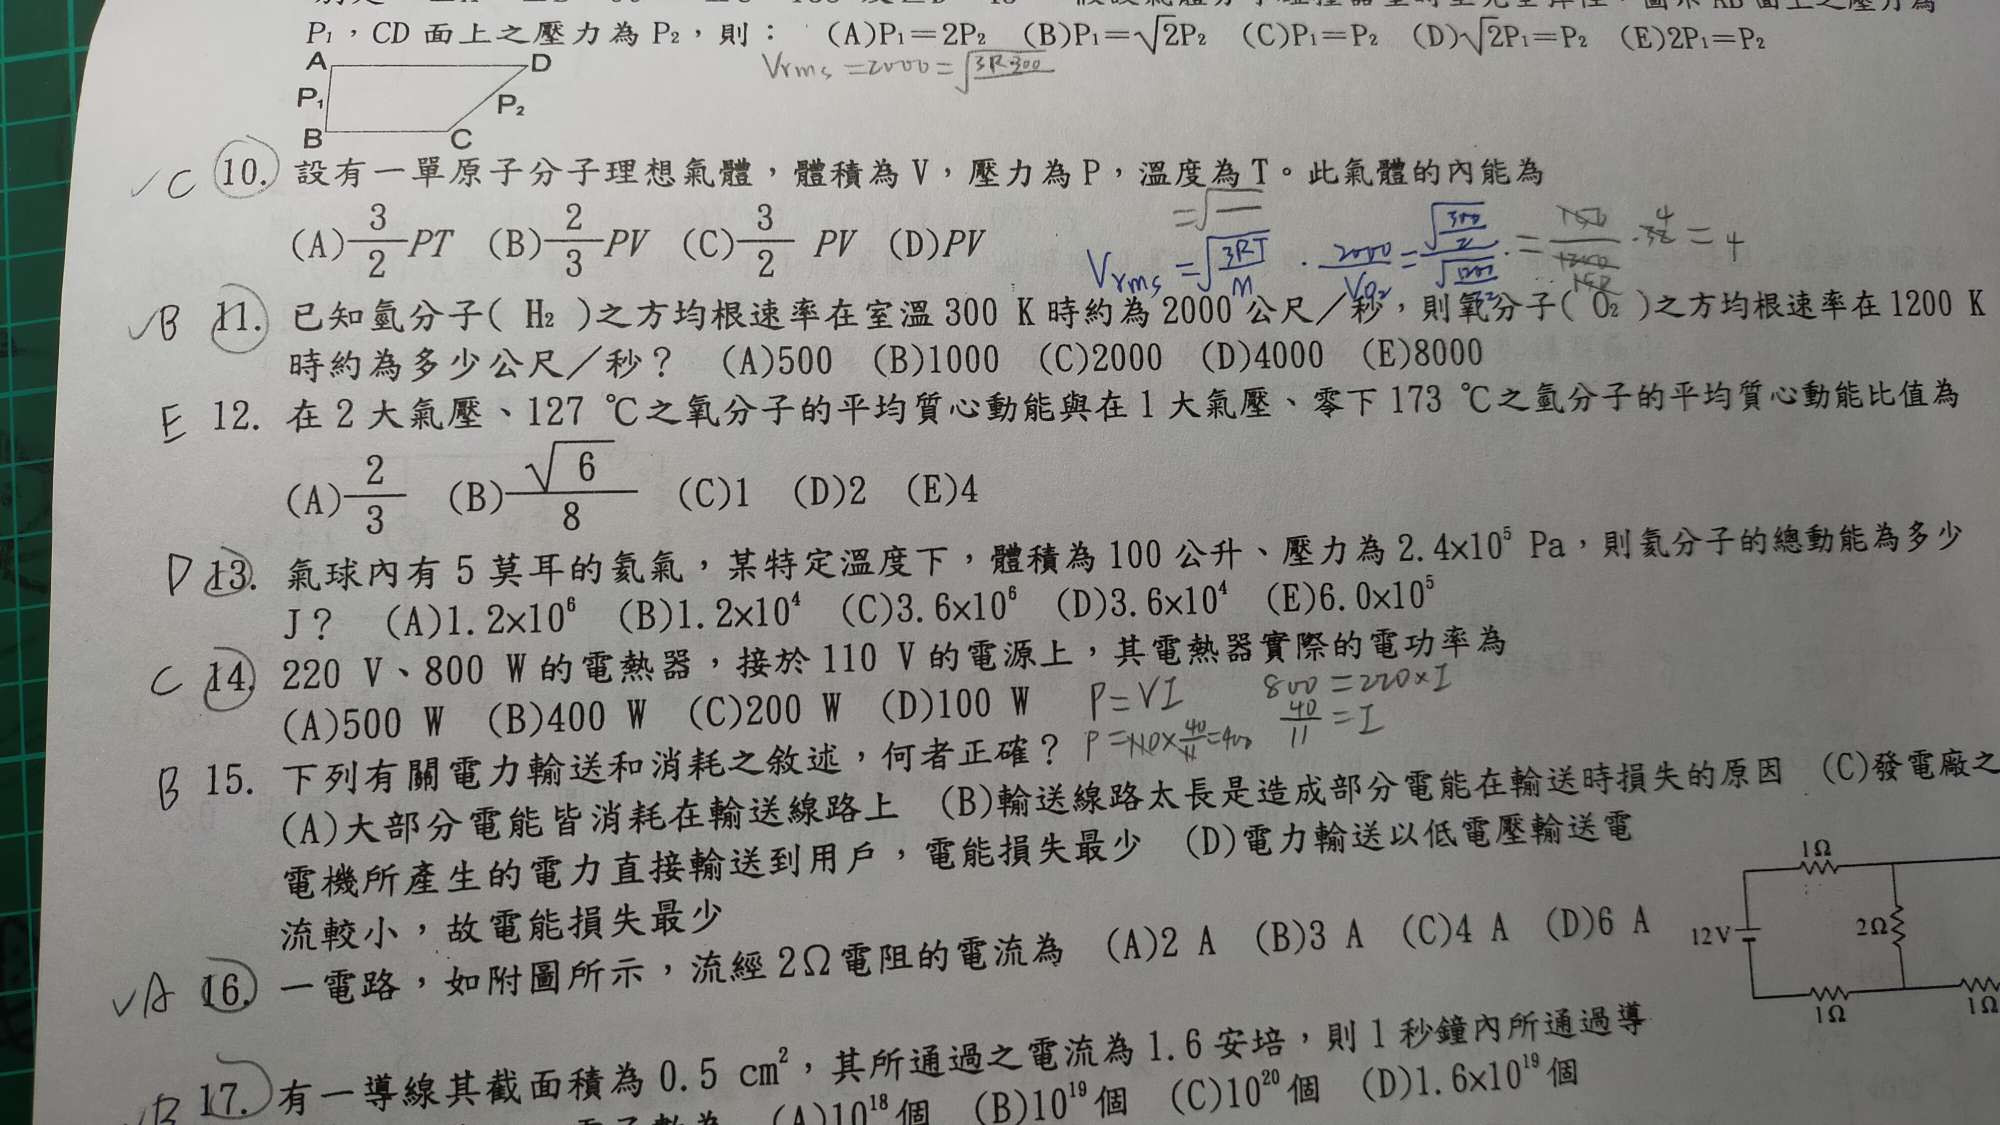 P₁,CD 面上之壓力為 P₂,則: (A)P₁=2P₂ (B)P₁=√2P₂ (C)P₁=P₂ (D)√2P₁=P₂ (E)2P₁=P₂
Vrms =2000=√3R·300
A D
P₁ P₂
B C
✓C 10. 設有一單原子分子理想氣體,體積為 V,壓力為 P,溫度為 T。此氣體的內能為
(A)3/2 PT (B)2/3 PV (C)3/2 PV (D)PV
Vrms = √3RT/M · 2000/VO₂ =
✓B 11. 已知氫分子( H₂ )之方均根速率在室溫 300 K 時約為 2000 公尺/秒,則氧分子( O₂ )之方均根速率在 1200 K
時約為多少公尺/秒? (A)500 (B)1000 (C)2000 (D)4000 (E)8000
E 12. 在 2 大氣壓、127 ℃之氧分子的平均質心動能與在 1 大氣壓、零下 173 ℃之氫分子的平均質心動能比值為
(A)2/3 (B)√6/8 (C)1 (D)2 (E)4
D 13. 氣球內有 5 莫耳的氦氣,某特定溫度下,體積為 100 公升、壓力為 2.4×10⁵ Pa,則氦分子的總動能為多少
J? (A)1.2×10⁶ (B)1.2×10⁴ (C)3.6×10⁶ (D)3.6×10⁴ (E)6.0×10⁵
C 14. 220 V、800 W 的電熱器,接於 110 V 的電源上,其電熱器實際的電功率為
(A)500 W (B)400 W (C)200 W (D)100 W
P=VI 800=220×I
P=110×40/11=400 40/11=I
B 15. 下列有關電力輸送和消耗之敘述,何者正確?
(A)大部分電能皆消耗在輸送線路上 (B)輸送線路太長是造成部分電能在輸送時損失的原因 (C)發電廠之
電機所產生的電力直接輸送到用戶,電能損失最少 (D)電力輸送以低電壓輸送電
流較小,故電能損失最少
✓A 16. 一電路,如附圖所示,流經 2Ω 電阻的電流為 (A)2 A (B)3 A (C)4 A (D)6 A
1Ω
12V 2Ω
1Ω 1Ω
✓B 17. 有一導線其截面積為 0.5 cm²,其所通過之電流為 1.6 安培,則 1 秒鐘內所通過導
(A)10¹⁸個 (B)10¹⁹個 (C)10²⁰個 (D)1.6×10¹⁹個